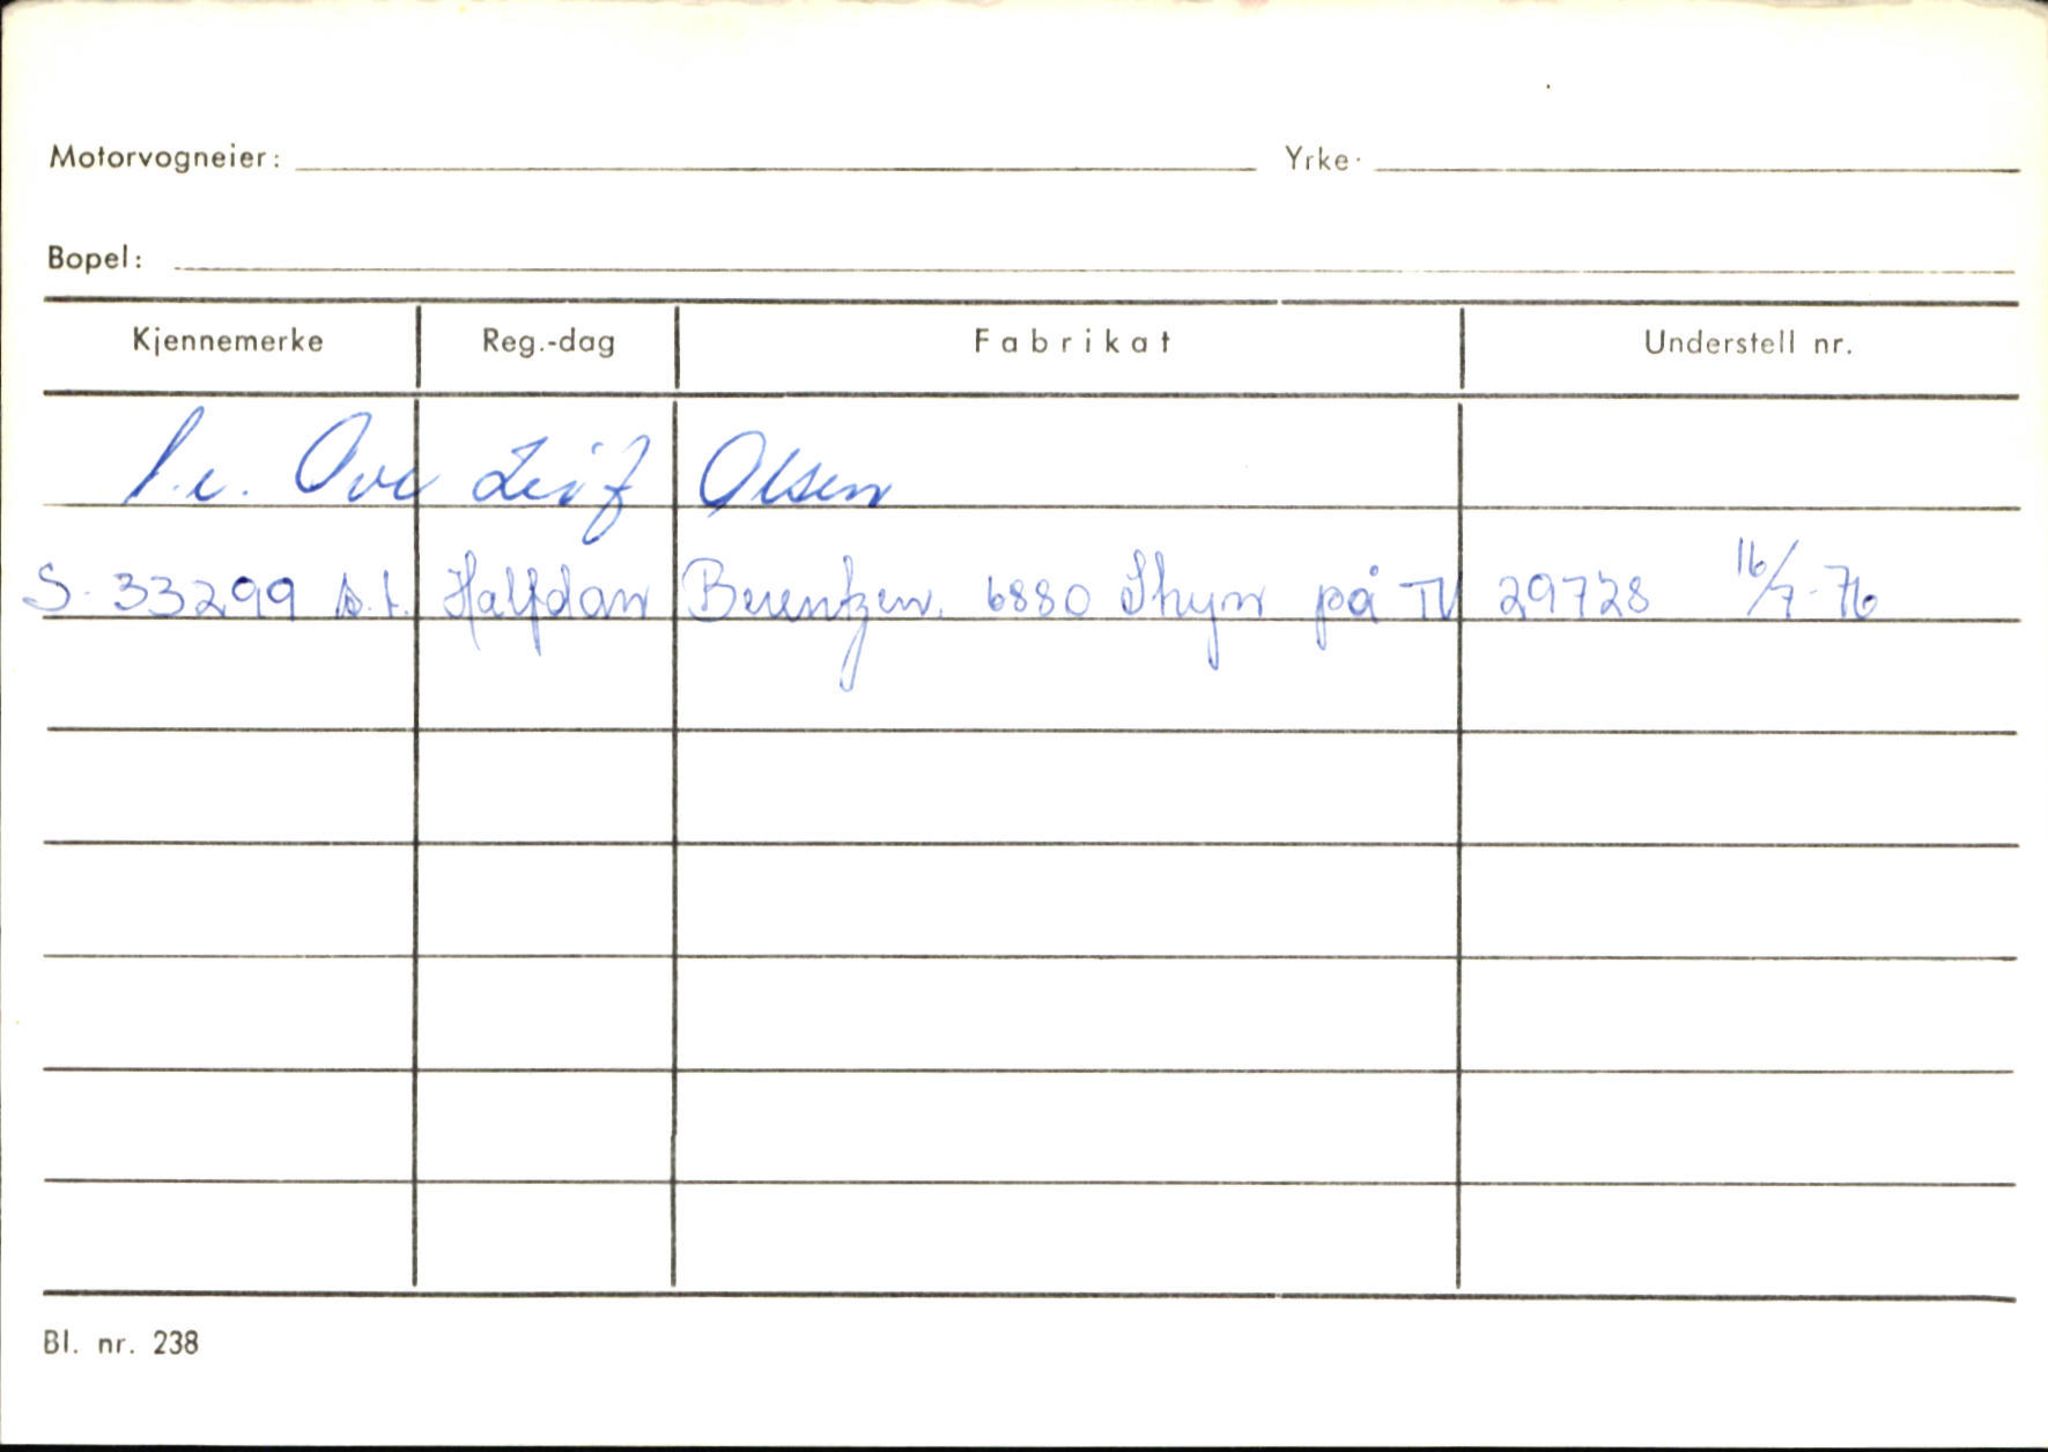 Motorvogneier: Yrke:
Bopel:
Kjennemerke Reg.-dag Fabrikat Understell nr.
Ove Leif Olsen
S-33299 s.t. Halfdan Berentzen. 6880 Stryn på TV 29728 16/7-76
Bl. nr. 238